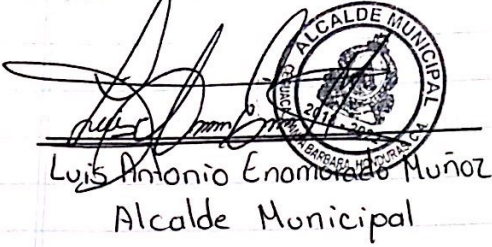 ALCALDE MUNICIPAL
BARBARA, HONDURAS, C.A.
Luis Antonio Enamorado Muñoz
Alcalde Municipal